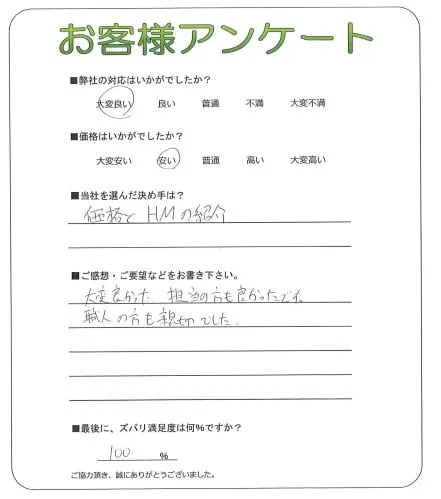 お客様アンケート
■弊社の対応はいかがでしたか？
大変良い 良い 普通 不満 大変不満
■価格はいかがでしたか？
大変安い 安い 普通 高い 大変高い
■当社を選んだ決め手は？
価格と HMの紹介
■ご感想・ご要望などをお書き下さい。
大変良かった 担当の方も良かったです。
職人の方も親切でした。
■最後に、ズバリ満足度は何％ですか？
100 ％
ご協力頂き、誠にありがとうございました。